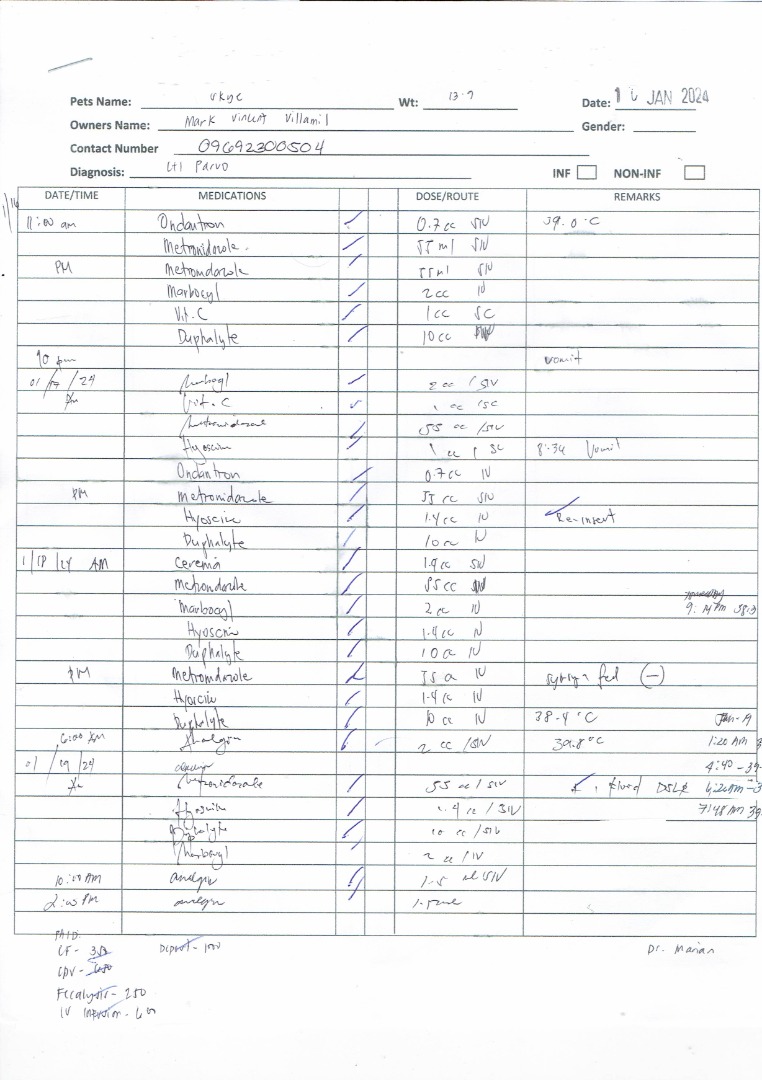 Pets Name: Wt: 13.7 Date: 16 JAN 2024
Owners Name: Mark Vincent Villamil Gender:
Contact Number 09692300504
Diagnosis: (+) Parvo INF NON-INF
DATE/TIME MEDICATIONS DOSE/ROUTE REMARKS
1/16
11:00 am Ondantron 0.7 cc SIV 39.0°C
Metronidazole. 55 ml SIV
PM Metronidazole 55 ml SIV
Marbocyl 2 cc IV
Vit. C 1 cc SC
Duphalyte 10 cc
10 pm vomit
01/17/24 2 cc / SIV
Vit. C 1 cc /SC
Metronidazole 55 cc /SIV
Hyoscin 1 cc / SC 8:34 Vomit
Ondantron 0.7 cc IV
PM Metronidazole 55 cc SIV
Hyoscine 1.4 cc IV Re-insert
Duphalyte 10 cc IV
1/18/24 AM Cerenia 1.9 cc SIV
Metronidazole 55 cc SIV
Marbocyl 2 cc IV 9:14 PM 38.3
Hyoscin 1.4 cc IV
Duphalyte 10 cc IV
PM Metronidazole 55 cc IV syringe fed (-)
Hyoscin 1.4 cc IV
Duphalyte 10 cc IV 38.4°C Jan-19
6:00 Analgin 2 cc /SIV 39.8°C 1:20 AM 3
01/19/24 4:40 - 39.
Metronidazole 55 cc / SIV fluid D5LR 6:20AM-3
Hyoscine 1.4 cc / SIV 7:48 AM 39.
Duphalyte 10 cc /SIV
Marbocyl 2 cc / IV
10:00 AM analgin 1.5 ml SIV
2:00 PM analgin 1.5 ml
PAID:
CF - 350 Deposit - 100
CPV - 650
Fecalysis - 250 Dr. Marian
IV Infusion - 600